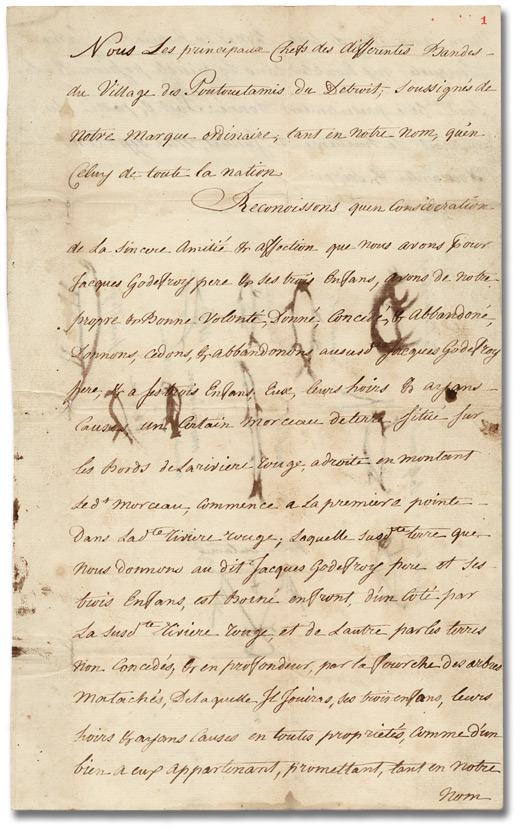 1
Nous Les principaux Chefs des differentes Bandes
du Village des Pontoutamis du Detroit, soussignés de
notre Marque ordinaire, tant en notre nom, qu'en
Celuy de toute la nation
Reconoissons qu'en Consideration
de La sincere Amitié & affection que nous avons Pour
Jacques Godefroy pere & ses trois Enfans, avons de notre
propre & Bonne Volonté, Donné, Concedé, & Abbandoné,
Donnons, cedons, & abbandonons aususd Jacques Godefroy
pere, & a ses trois Enfans, Eux, leurs hoirs & ayans
Causes un Certain morceau de terre situé sur
les Bords de La riviere Rouge, a droite en montant
Le dt. morceau, Commence a La premiere pointe
Dans Lad.te Riviere rouge, Laquelle susd.te terre que
nous donnons au dit Jacques Godefroy pere et ses
trois Enfans, est Borné en front, d'un Coté par
La susd.te Riviere rouge, et de Lautre par les terres
non Concedés, & en profondeur, par la fourche des arbres
Matachés, De laquelle Il Jouiras, ses trois enfans, leurs
hoirs & ayans Causes en toutes proprietés, Comme d'un
bien a eux appartenant, promettant, tant en notre
nom